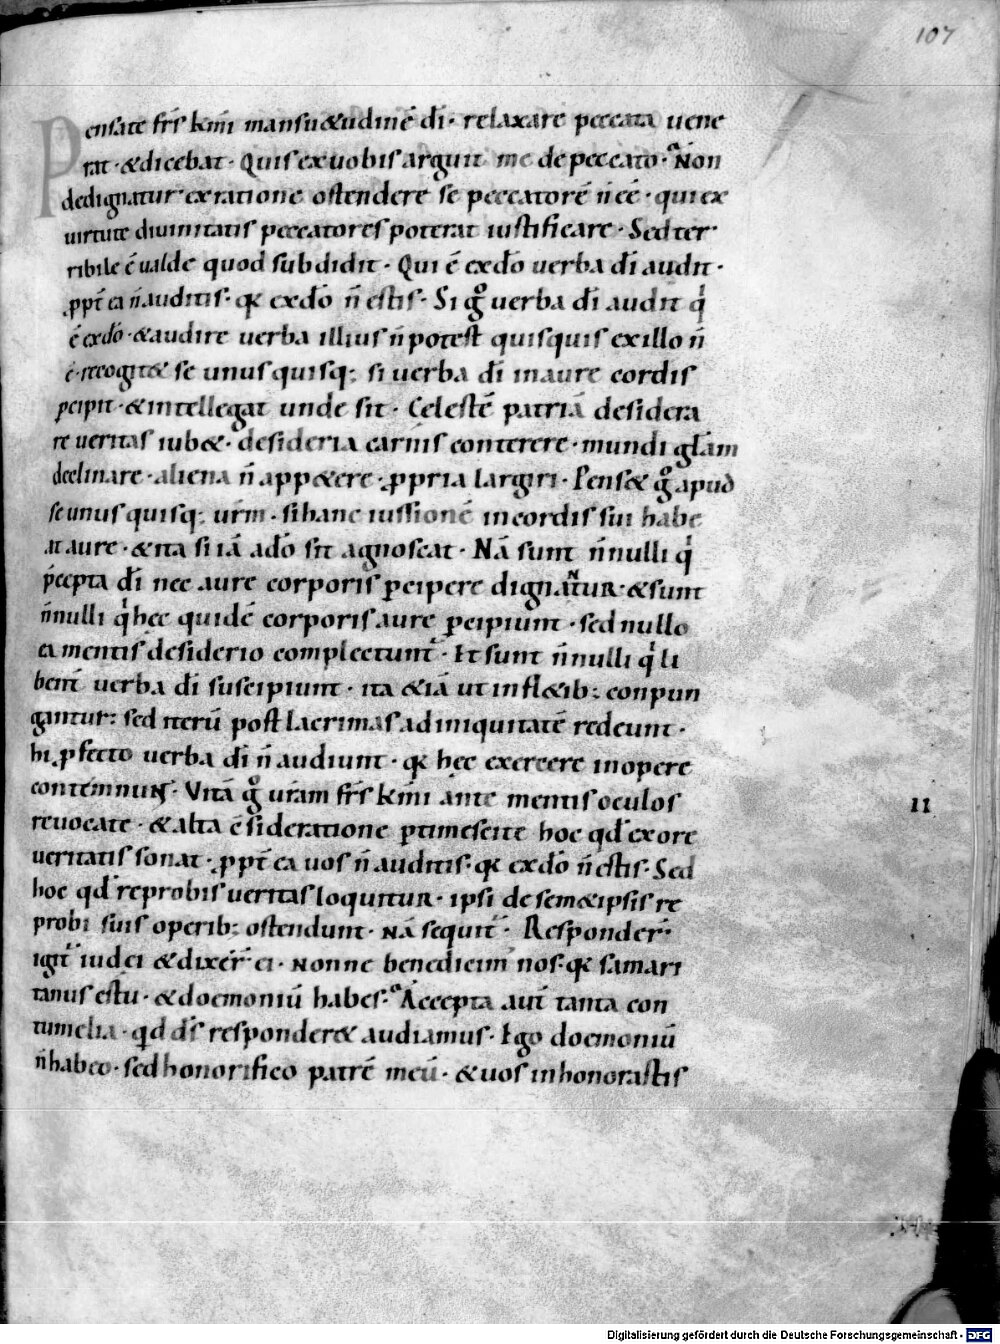 107
Pensate frs̄ km̄i mansu&udinē dī· relaxare peccata uene
rat· &dicebat· Quis exuobis arguit me depeccato· Non
dedignatur exratione ostendere se peccatorē n̄ eē· quiex
uirtute diuinitatis peccatores poterat iustificare· Sedter
ribile ē ualde quod subdidit· Qui ē exdō uerba dī audit·
ꝓpt̄ ea n̄ auditis· qꝛ exdō n̄ estis· Si gͦ uerba dī audit qͥ
ē exdō· &audire uerba illius n̄ potest quisquis exillo n̄
ē· recogit& se unusquisq; si uerba dī inaure cordis
ꝑcipit· &intellegat unde sit· Celestē patriā desidera
re ueritas iub&· desideria carnis conterere· mundi glām
declinare· aliena n̄ app&ere· ꝓpria largiri· Pens& gͦ apud
se unusquisq; ur̄m· sihanc iussionē incordis sui habe
at aure· &ita si iā adō sit agnoscat· Nā sunt n̄nulli qͥ
p̄cepta dī nec aure corporis ꝑcipere dignantur· &sunt
n̄nulli qͥ hec quidē corporis aure ꝑcipiunt· sed nullo
ea mentis desiderio complectunt᷑· Et sunt n̄nulli qͥ li
bent᷑ uerba dī suscipiunt· ita &iā ut infl&ib; conpun
gantur: sed iterū post lacrimas adiniquitatē redeunt·
hi ꝓfecto uerba dī n̄ audiunt· qꝛ hec exercere inopere
contemnunt· Vitā gͦ urām frs̄ km̄i ante mentis oculos
reuocate· &alta ꝯsideratione ꝑtimescite hoc qđ exore
ueritatis sonat· ꝓpt̄ ea uos n̄ auditis· qꝛ exdō n̄ estis· Sed
hoc qđ reprobis ueritas loquitur· ipsi desem&ipsis re
probi suis operib; ostendunt· Nā sequit᷑· Responder̄
igit᷑ iudei &dixer̄ ei· Nonne benedicim᷒ nos· qꝛ samari
tanus estu· &doemoniū habes· Accepta aut̄ tanta con
tumelia· qđ dn̄s responder& audiamus· Ego doemoniū
n̄ habeo· sed honorifico patrē meū· &uos inhonorastis
11
Digitalisierung gefördert durch die Deutsche Forschungsgemeinschaft - DFG